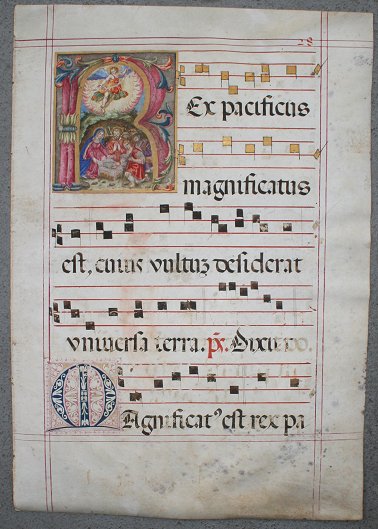 28
REx pacificus
magnificatus
est, cuius vultuz desiderat
vniuersa terra. p̄s. Dixit
MAgnificatꝰ est rex pa